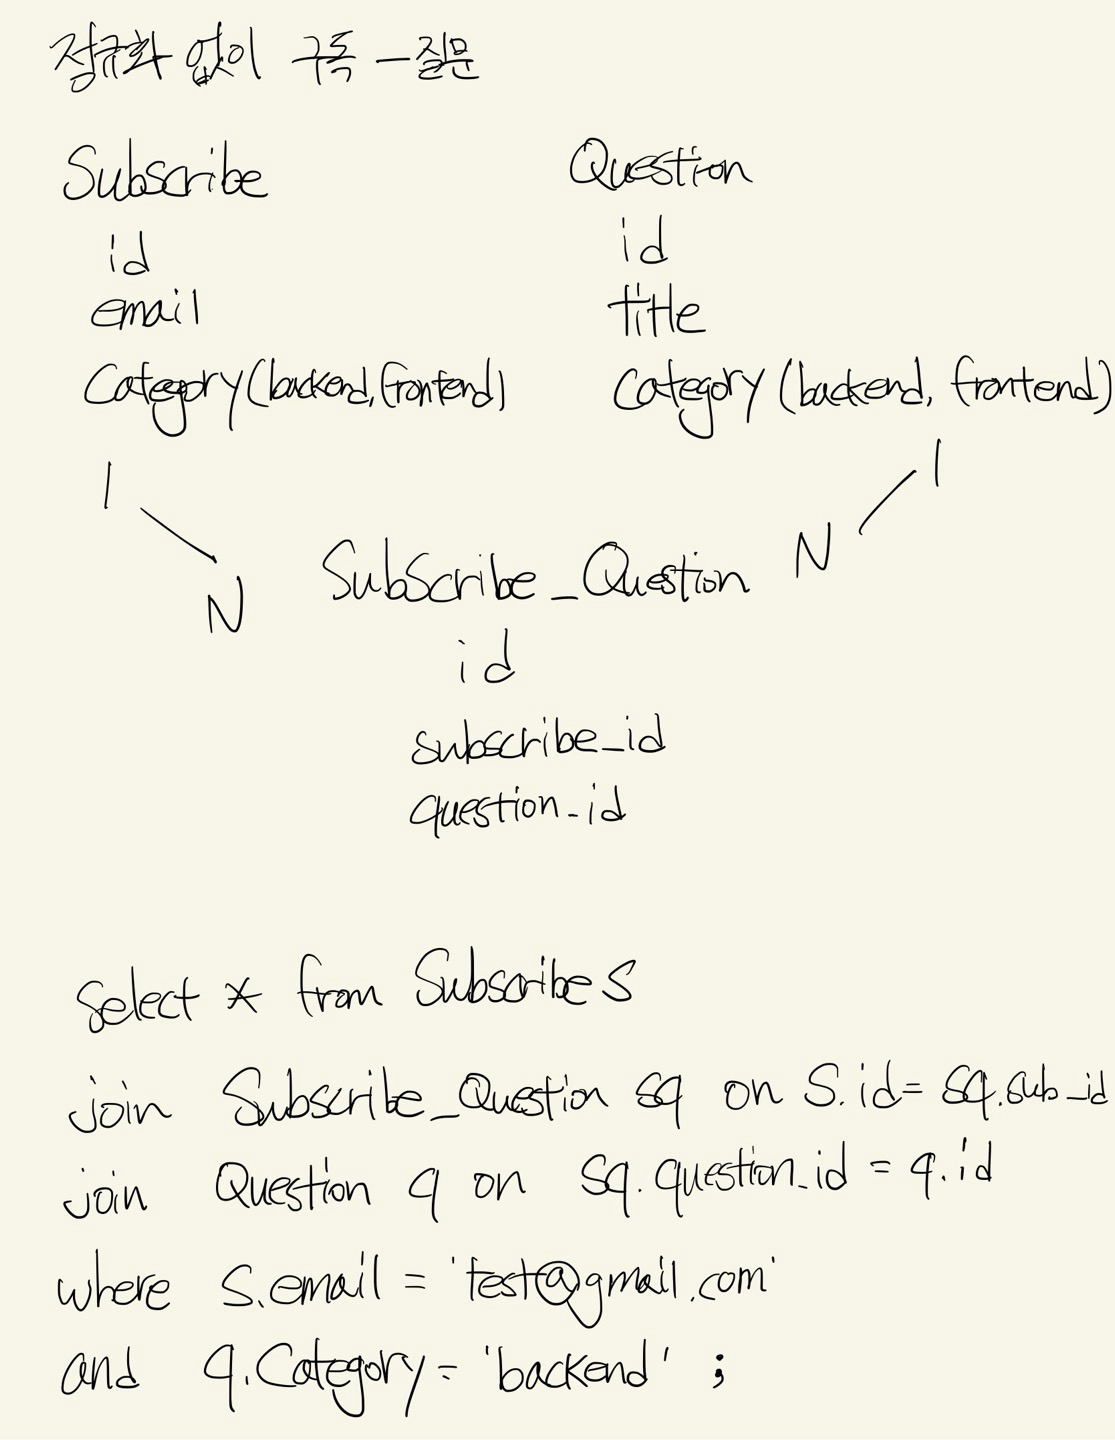 정규화 없이 구독 – 질문
Subscribe
id
email
Category(backend, frontend)
Question
id
title
Category (backend, frontend)
1
N
1
N
Subscribe_Question
id
subscribe_id
question_id
Select * from Subscribe S
join Subscribe_Question sq on S.id = sq.sub_id
join Question q on sq.question_id = q.id
where S.email = 'test@gmail.com'
and q.Category = 'backend' ;